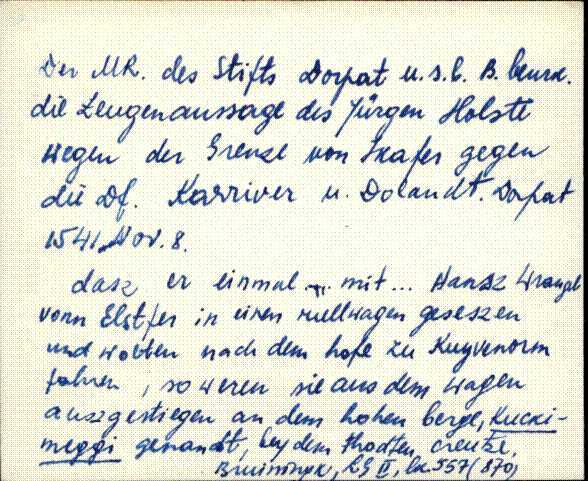 Der MR. des Stifts Dorpat u. s. b. B. beurk.
die Zeugenaussage des Jürgen Holste
wegen der Grenze von Skafer gegen
die Df. Karriver u. Dolandt. Dorpat
1541 Nov. 8.
dasz er einmal ... mit ... Hansz Wrangel
vonn Elstfer in einen rullwagen geseszen
und wolten nach dem hofe zu Kuyvenorm
fahren, so weren sie aus dem wagen
auszgestiegen an dem hohen berge, Kucki-
meggi genandt, bey dem thodten creutze.
Bruiningk, LG II, lk 557 (870)